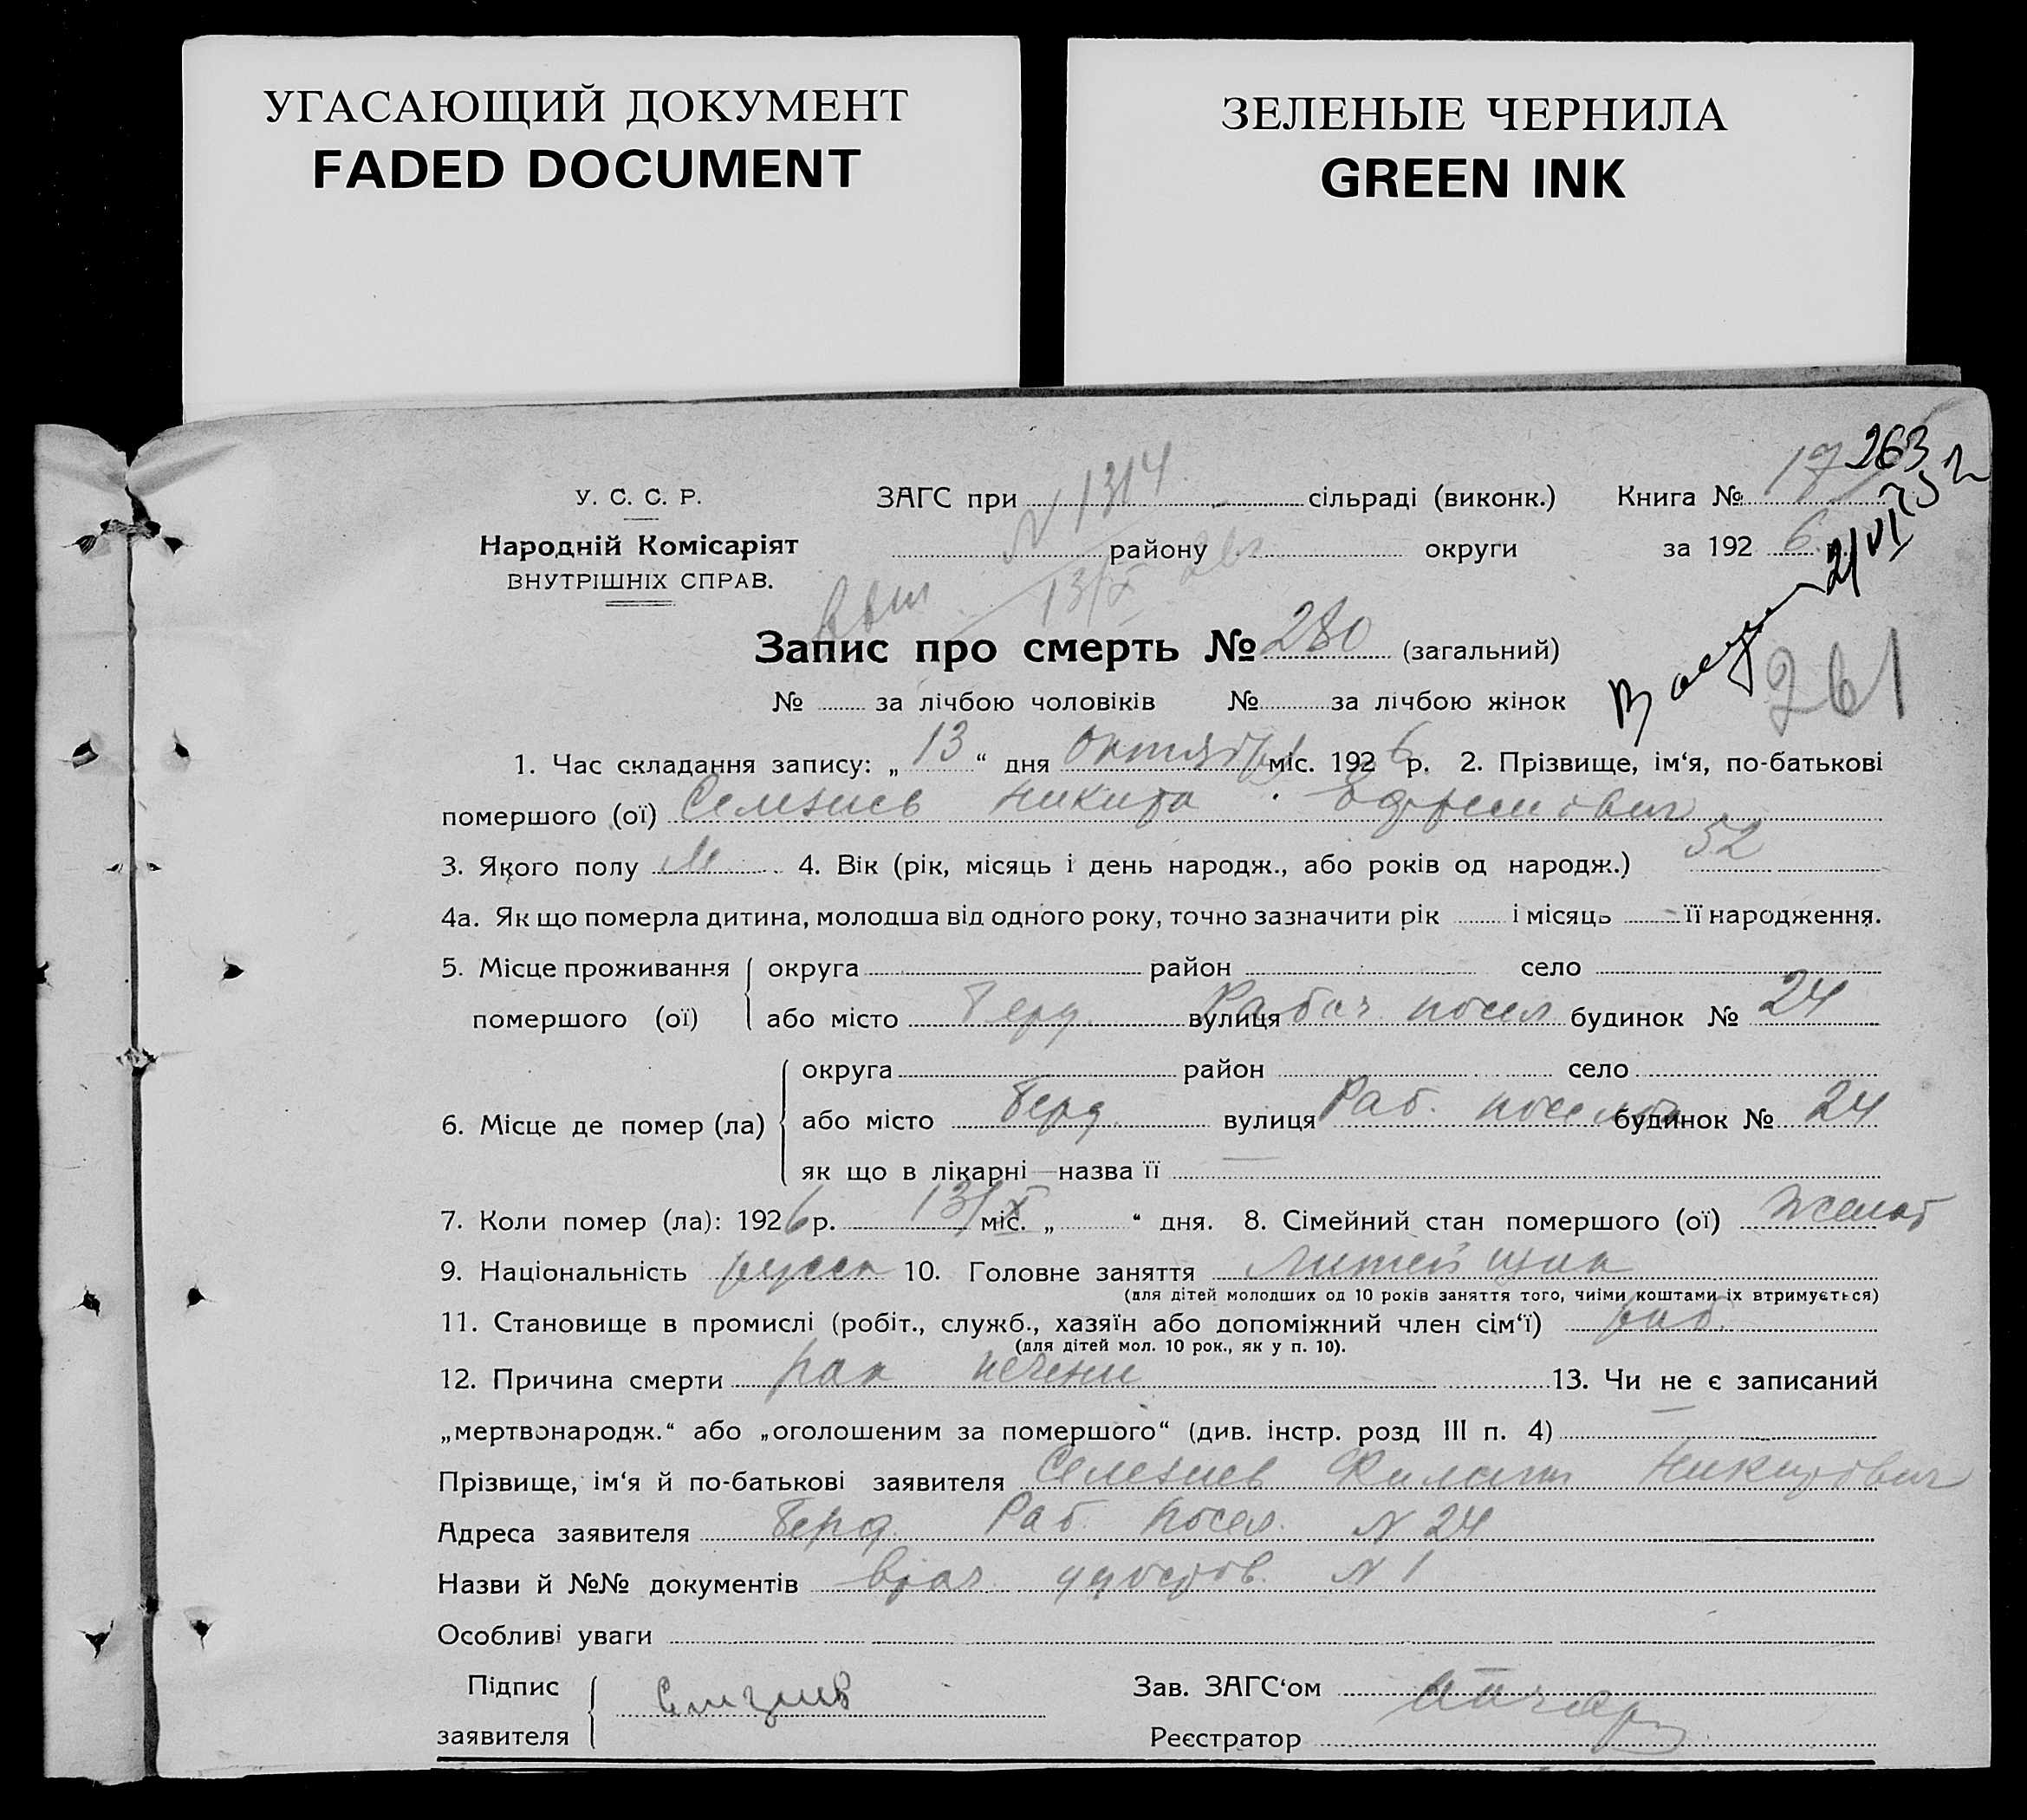 УГАСАЮЩИЙ ДОКУМЕНТ
FADED DOCUMENT
ЗЕЛЕНЫЕ ЧЕРНИЛА
GREEN INK
263
У. С. С. Р.
Народній Комісаріят
ВНУТРІШНІХ СПРАВ.
ЗАГС при N 1314 сільраді (виконк.) Книга № 17
району округи за 1926
13/X 26
Запис про смерть № 280 (загальний)
261
№ за лічбою чоловіків № за лічбою жінок
1. Час складання запису: „13“ дня октября міс. 1926 р. 2. Прізвище, ім‘я, по-батькові
помершого (ої) Селезнев Никита Ефремович
3. Якого полу М 4. Вік (рік, місяць і день народж., або років од народж.) 52
4а. Як що померла дитина, молодша від одного року, точно зазначити рік і місяць її народження.
5. Місце проживання помершого (ої) округа район село
або місто Берд. вулиця Рабоч посел будинок № 24
6. Місце де помер (ла) округа район село
або місто Берд. вулиця Раб. поселок будинок № 24
як що в лікарні—назва її
7. Коли помер (ла): 1926 р. 13/X міс. „ “ дня. 8. Сімейний стан помершого (ої) женат
9. Національність русск 10. Головне заняття Литейщик
(для дітей молодших од 10 років заняття того, чиїми коштами їх втримується)
11. Становище в промислі (робіт., служб., хазяїн або допоміжний член сім‘ї) раб.
(для дітей мол. 10 рок., як у п. 10).
12. Причина смерти рак печени 13. Чи не є записаний
„мертвонародж.“ або „оголошеним за помершого“ (див. інстр. розд III п. 4)
Прізвище, ім‘я й по-батькові заявителя Селезнев Филипп Никитович
Адреса заявителя Берд. Раб. посел. N 24
Назви й №№ документів врач. удостов. N 1
Особливі уваги
Підпис заявителя Селезнев
Зав. ЗАГС‘ом
Реєстратор